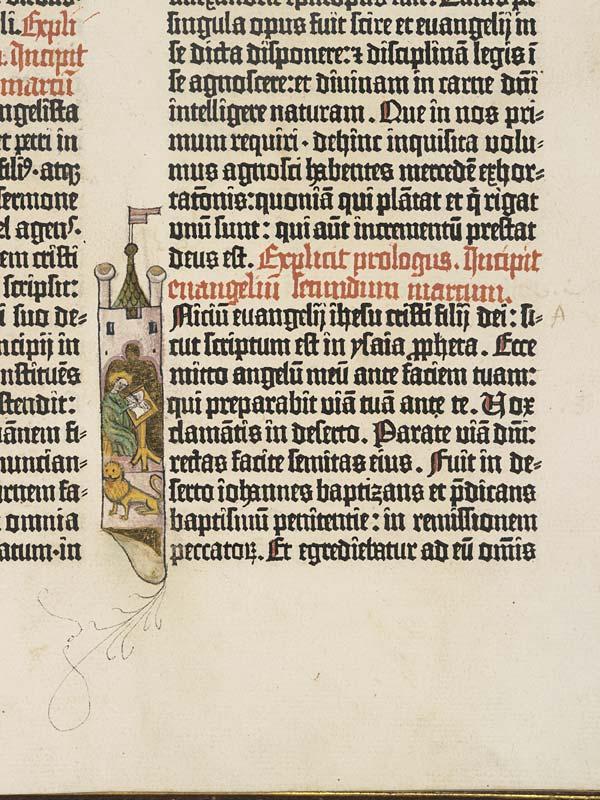 li. Expli
. Incipit
marcū
ngelista
et petri in
filiꝰ. atqꝫ
sermone
el agens.
em cristi
scripsit:
i suo de-
ncipij in
nstituēs
stendit:
uānem fi-
nuncian-
rnem fa-
omnia
atum·in
singula opus fuit scire et euangelij in
se dicta disponere: ⁊ disciplinā legis ī
se agnoscere: et diuinam in carne dn̄i
intelligere naturam. Que in nos pri-
mum requiri· dehinc inquisita volu-
mus agnosci habentes mercedē exhor-
tatōnis: quoniā qui plātat et q̄ rigat
vnū sunt: qui aūt incrementū prestat
deus est. Explicit prologus. Incipit
euangeliū secundum marcum.
Niciū euangelij ihesu cristi filij dei: si-
cut scriptum est in ysaia ꝓpheta. Ecce
mitto angelū meū ante faciem tuam:
qui preparabit viā tuā ante te. Vox
clamātis in deserto. Parate viā dn̄i:
rectas facite semitas eius. Fuit in de-
serto iohannes baptizans et p̄dicans
baptismū penitentie: in remissionem
peccatoꝝ. Et egrediebatur ad eū om̄is
A